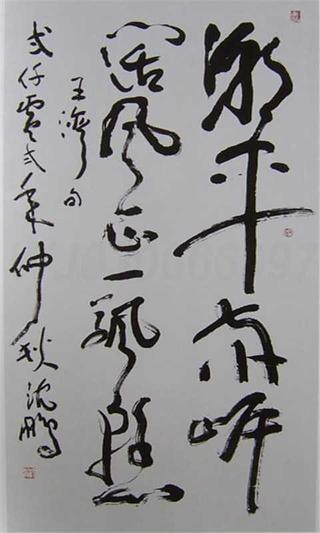 潮平两岸
阔风正一颿懸
王湾句
弍仟零弍年仲秋沈鹏